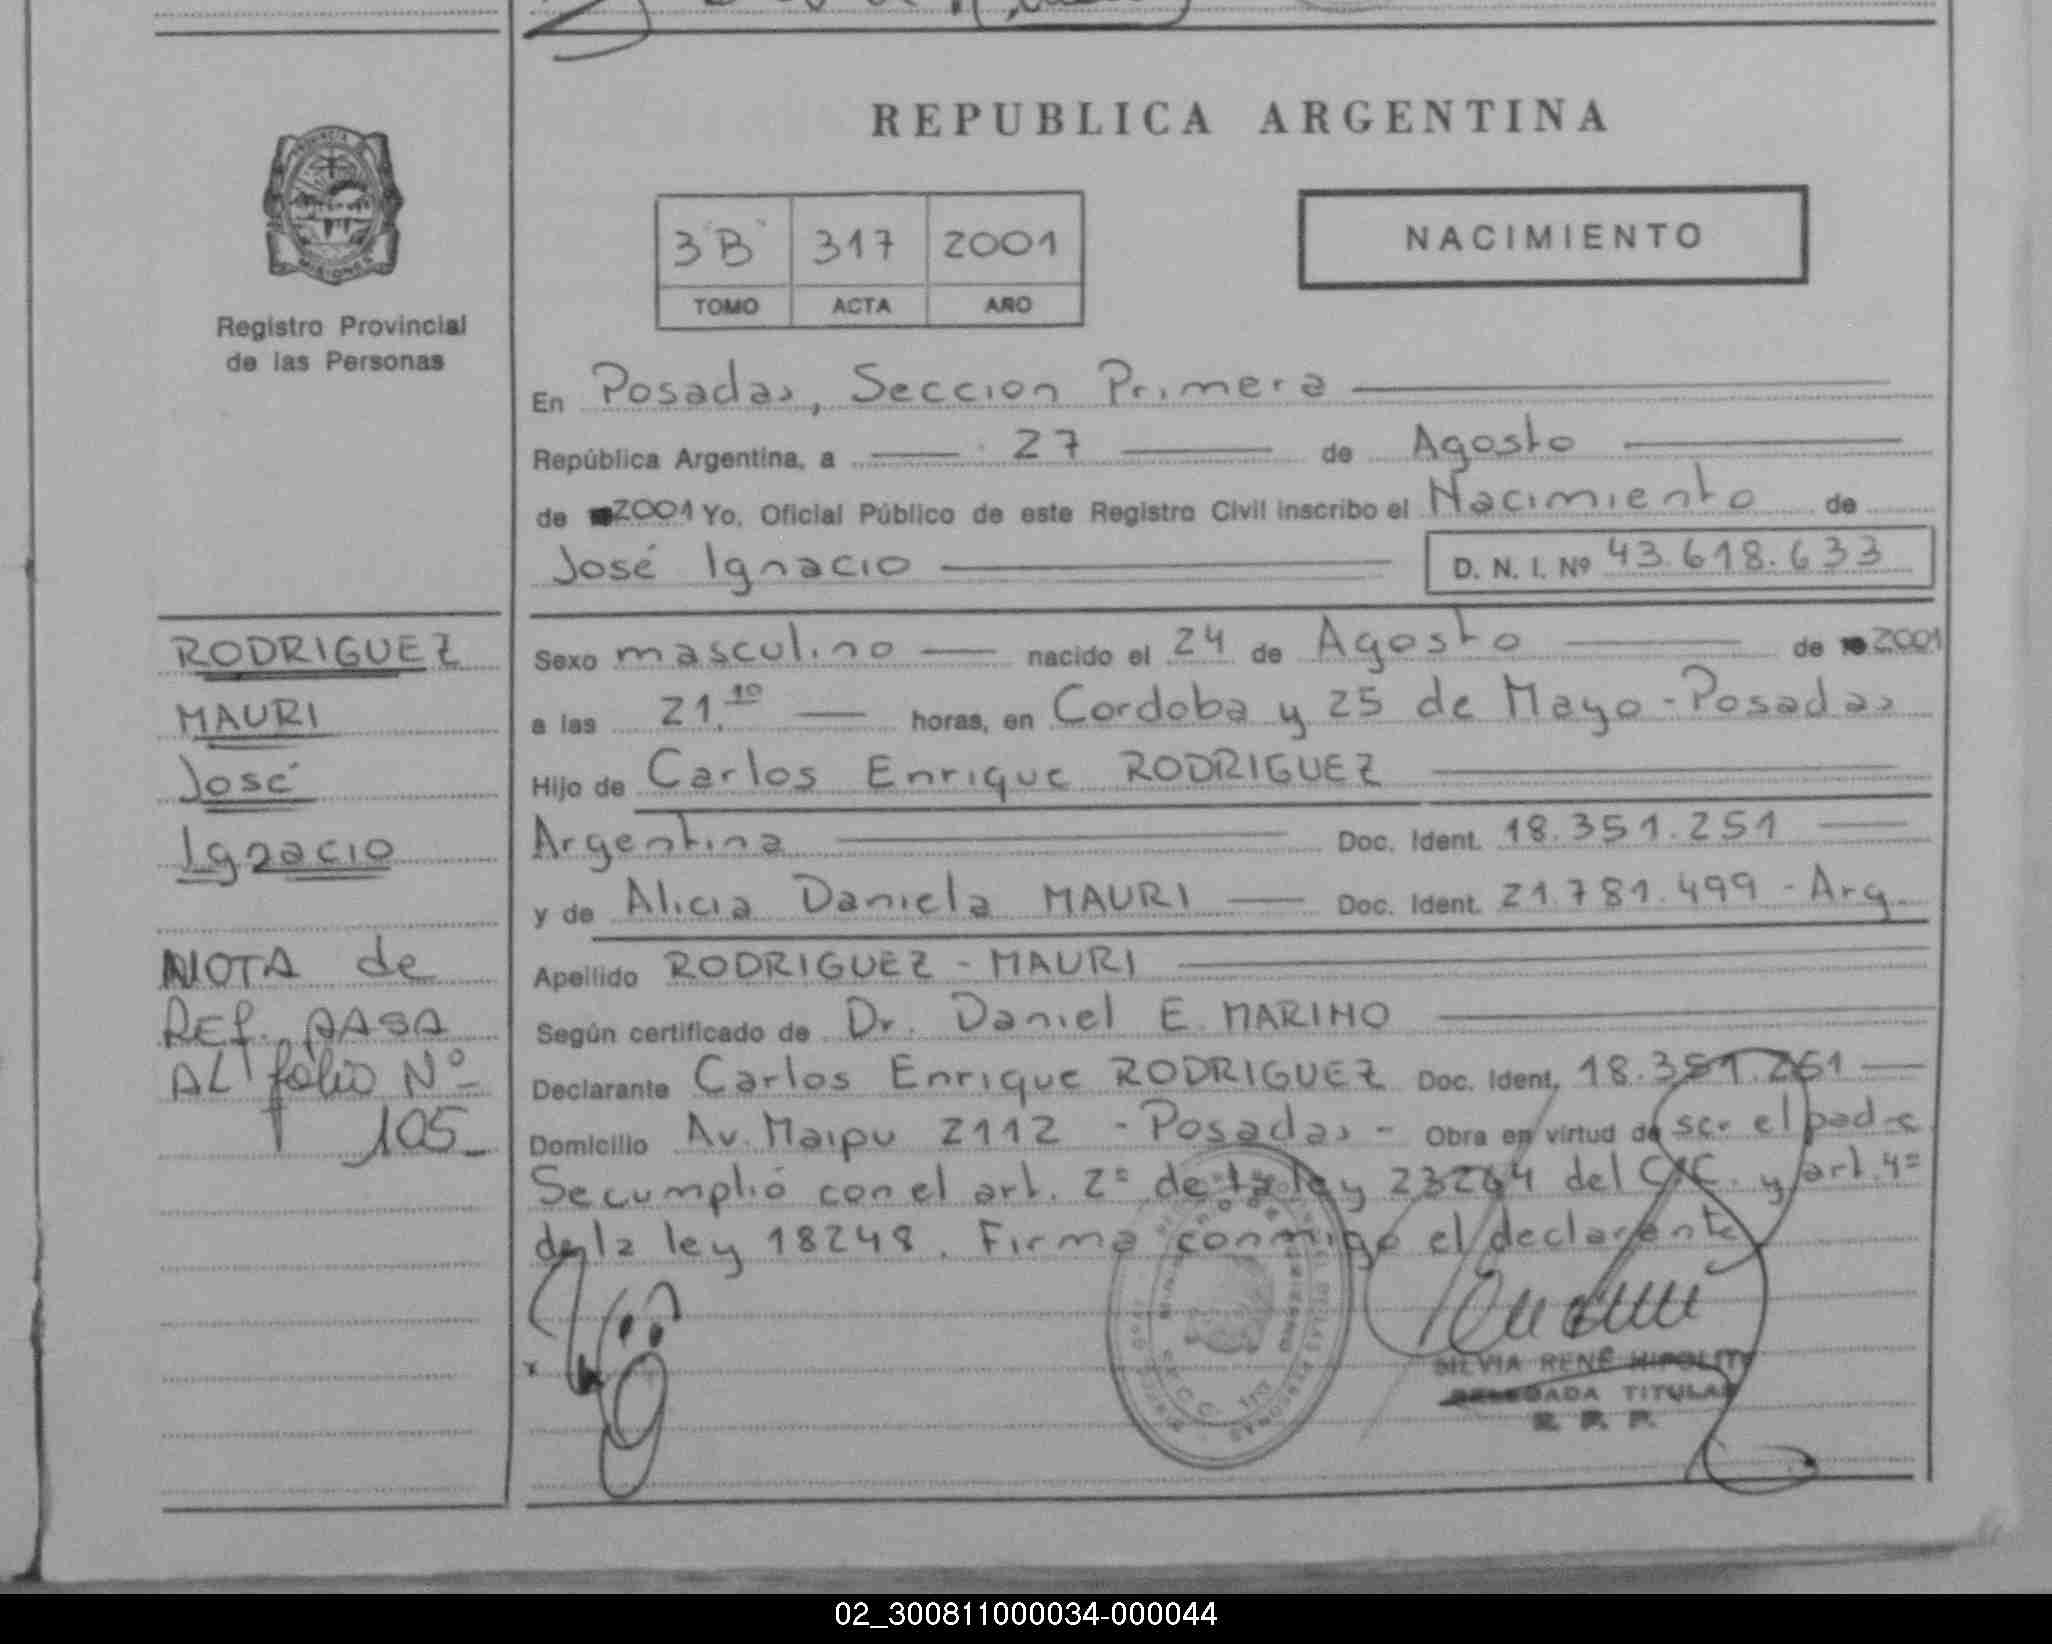 REPUBLICA ARGENTINA
PROVINCIA DE
MISIONES
Registro Provincial
de las Personas
3 "B" 317 2001
TOMO ACTA AÑO
NACIMIENTO
En Posadas, Seccion Primera
República Argentina, a 27 de Agosto
de 2001 Yo, Oficial Público de este Registro Civil inscribo el Nacimiento de
José Ignacio D. N. I. Nº 43.618.633
RODRIGUEZ
MAURI
José
Ignacio
NOTA de
REF.
AL folio Nº
105
Sexo masculino nacido el 24 de Agosto de 2001
a las 21.10 horas, en Cordoba y 25 de Mayo - Posadas
Hijo de Carlos Enrique RODRIGUEZ
Argentina Doc. Ident. 18.351.251
y de Alicia Daniela MAURI Doc. Ident. 21.781.499 - Arg.
Apellido RODRIGUEZ - MAURI
Según certificado de Dr. Daniel E. MARINO
Declarante Carlos Enrique RODRIGUEZ Doc. Ident. 18.351.251
Domicilio Av. Maipu 2112 - Posadas - Obra en virtud de ser el padre
Se cumplió con el art. 2º de la ley 23264 del C.C. y art. 4º
de la ley 18248. Firma conmigo el declarante
SILVIA RENÉ HIPOLITO
DELEGADA TITULAR
R. P. P.
02_300811000034-000044